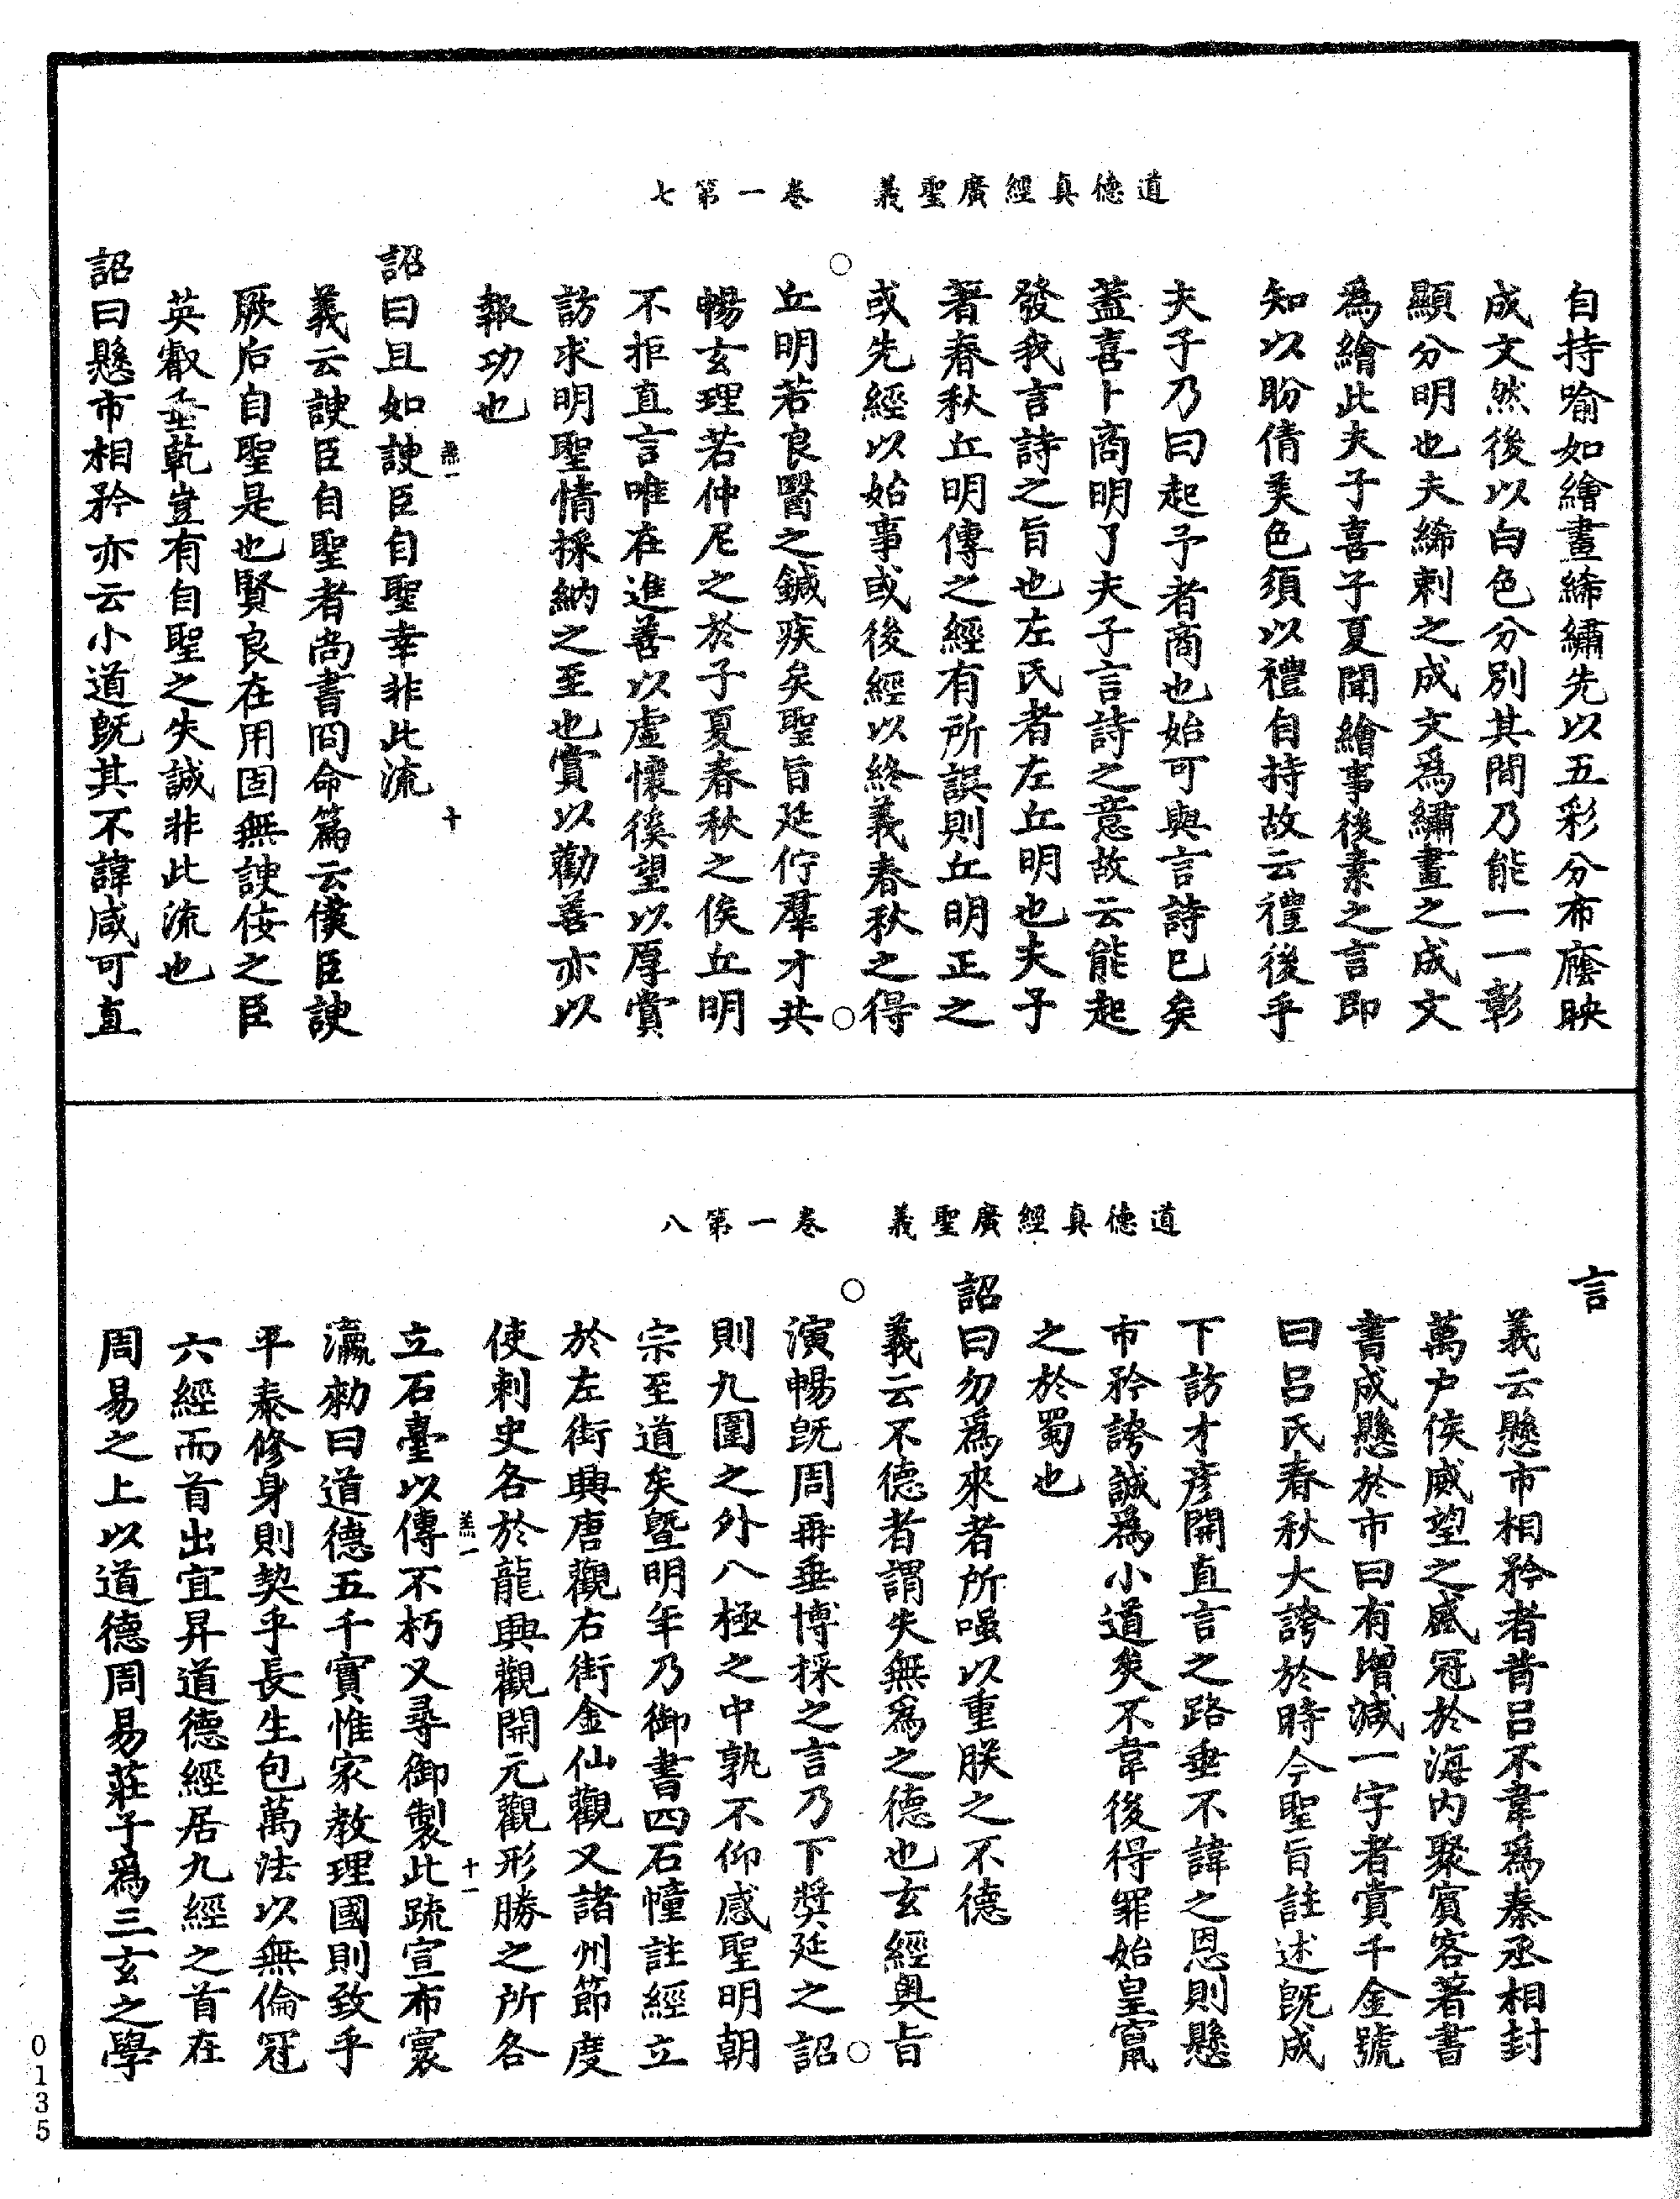 道德真經廣聖義　卷一第七
自持喻如繪畫絺繡先以五彩分布廕映
成文然後以白色分別其間乃能一一彰
顯分明也夫絺刺之成文爲繡畫之成文
爲繪此夫子喜子夏聞繪事後素之言即
知以盼倩美色須以禮自持故云禮後乎
夫子乃曰起予者商也始可與言詩已矣
蓋喜卜商明了夫子言詩之意故云能起
發我言詩之旨也左氏者左丘明也夫子
著春秋丘明傳之經有所誤則丘明正之
或先經以始事或後經以終義春秋之得
丘明若良醫之鍼疾矣聖旨延佇羣才共
暢玄理若仲尼之於子夏春秋之俟丘明
不拒直言唯在進善以虛懷徯望以厚賞
訪求明聖情採納之至也賞以勸善亦以
報功也
羔一　十
詔曰且如諛臣自聖幸非此流
義云諛臣自聖者尚書冏命篇云僕臣諛
厥后自聖是也賢良在用固無諛佞之臣
英叡垂乾豈有自聖之失誠非此流也
詔曰懸市相矜亦云小道既其不諱咸可直
道德真經廣聖義　卷一第八
言
義云懸市相矜者昔呂不韋爲秦丞相封
萬戶侯威望之盛冠於海內聚賓客著書
書成懸於市曰有增減一字者賞千金號
曰呂氏春秋大誇於時今聖旨註述既成
下訪才彦開直言之路垂不諱之恩則懸
市矜誇誠爲小道矣不韋後得罪始皇竄
之於蜀也
詔曰勿爲來者所嗤以重朕之不德
義云不德者謂失無爲之德也玄經奧旨
演暢既周再垂博採之言乃下獎延之詔
則九圍之外八極之中孰不仰感聖明朝
宗至道矣暨明年乃御書四石幢註經立
於左街興唐觀右街金仙觀又諸州節度
使刺史各於龍興觀開元觀形勝之所各
羔一　十一
立石臺以傳不朽又尋御製此疏宣布寰
瀛勑曰道德五千實惟家教理國則致乎
平泰修身則契乎長生包萬法以無倫冠
六經而首出宜昇道德經居九經之首在
周易之上以道德周易莊子爲三玄之學
0135